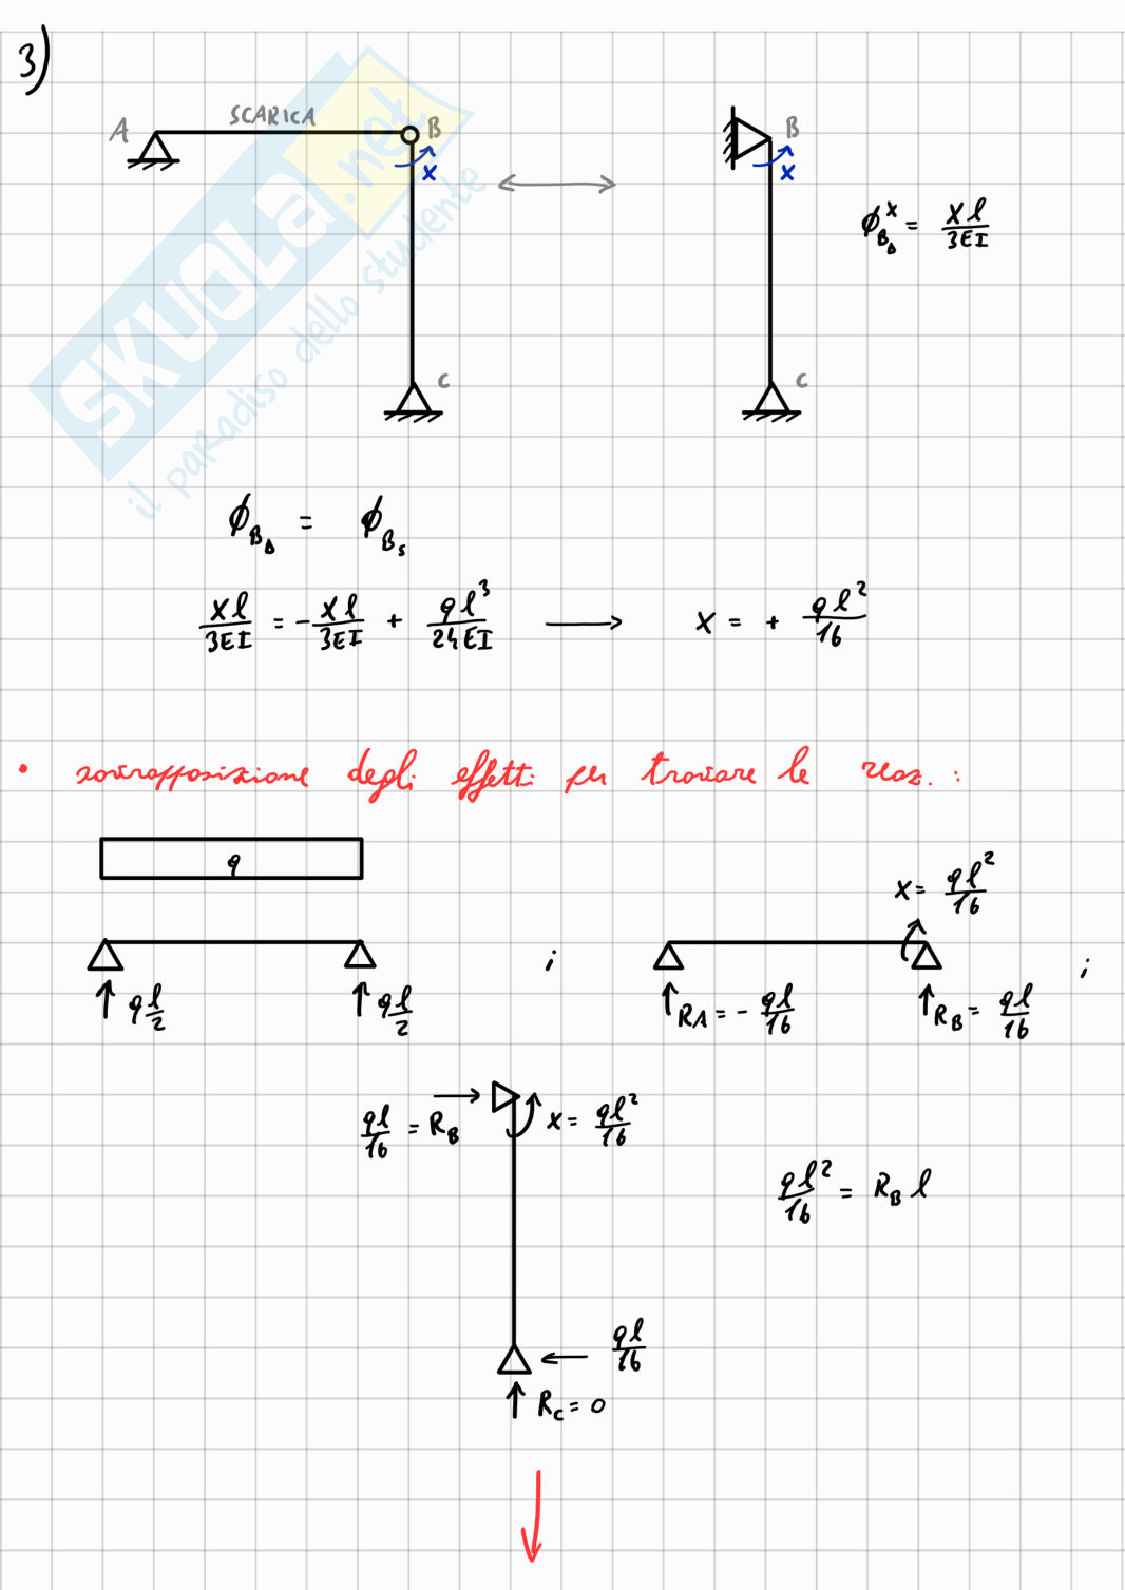 3)
A SCARICA B B
x x
ϕ_{B_D}^x = xl/3EI
C C
SKUOLA.net
il paradiso dello studente
ϕ_{B_D} = ϕ_{B_S}
xl/3EI = - xl/3EI + ql³/24EI ⟶ x = + ql²/16
• sovrapposizione degli effetti per trovare le reaz. :
q
x = ql²/16
ql/2 ql/2 ; R_A = - ql/16 R_B = ql/16 ;
ql/16 = R_B x = ql²/16
ql²/16 = R_B l
ql/16
R_C = 0